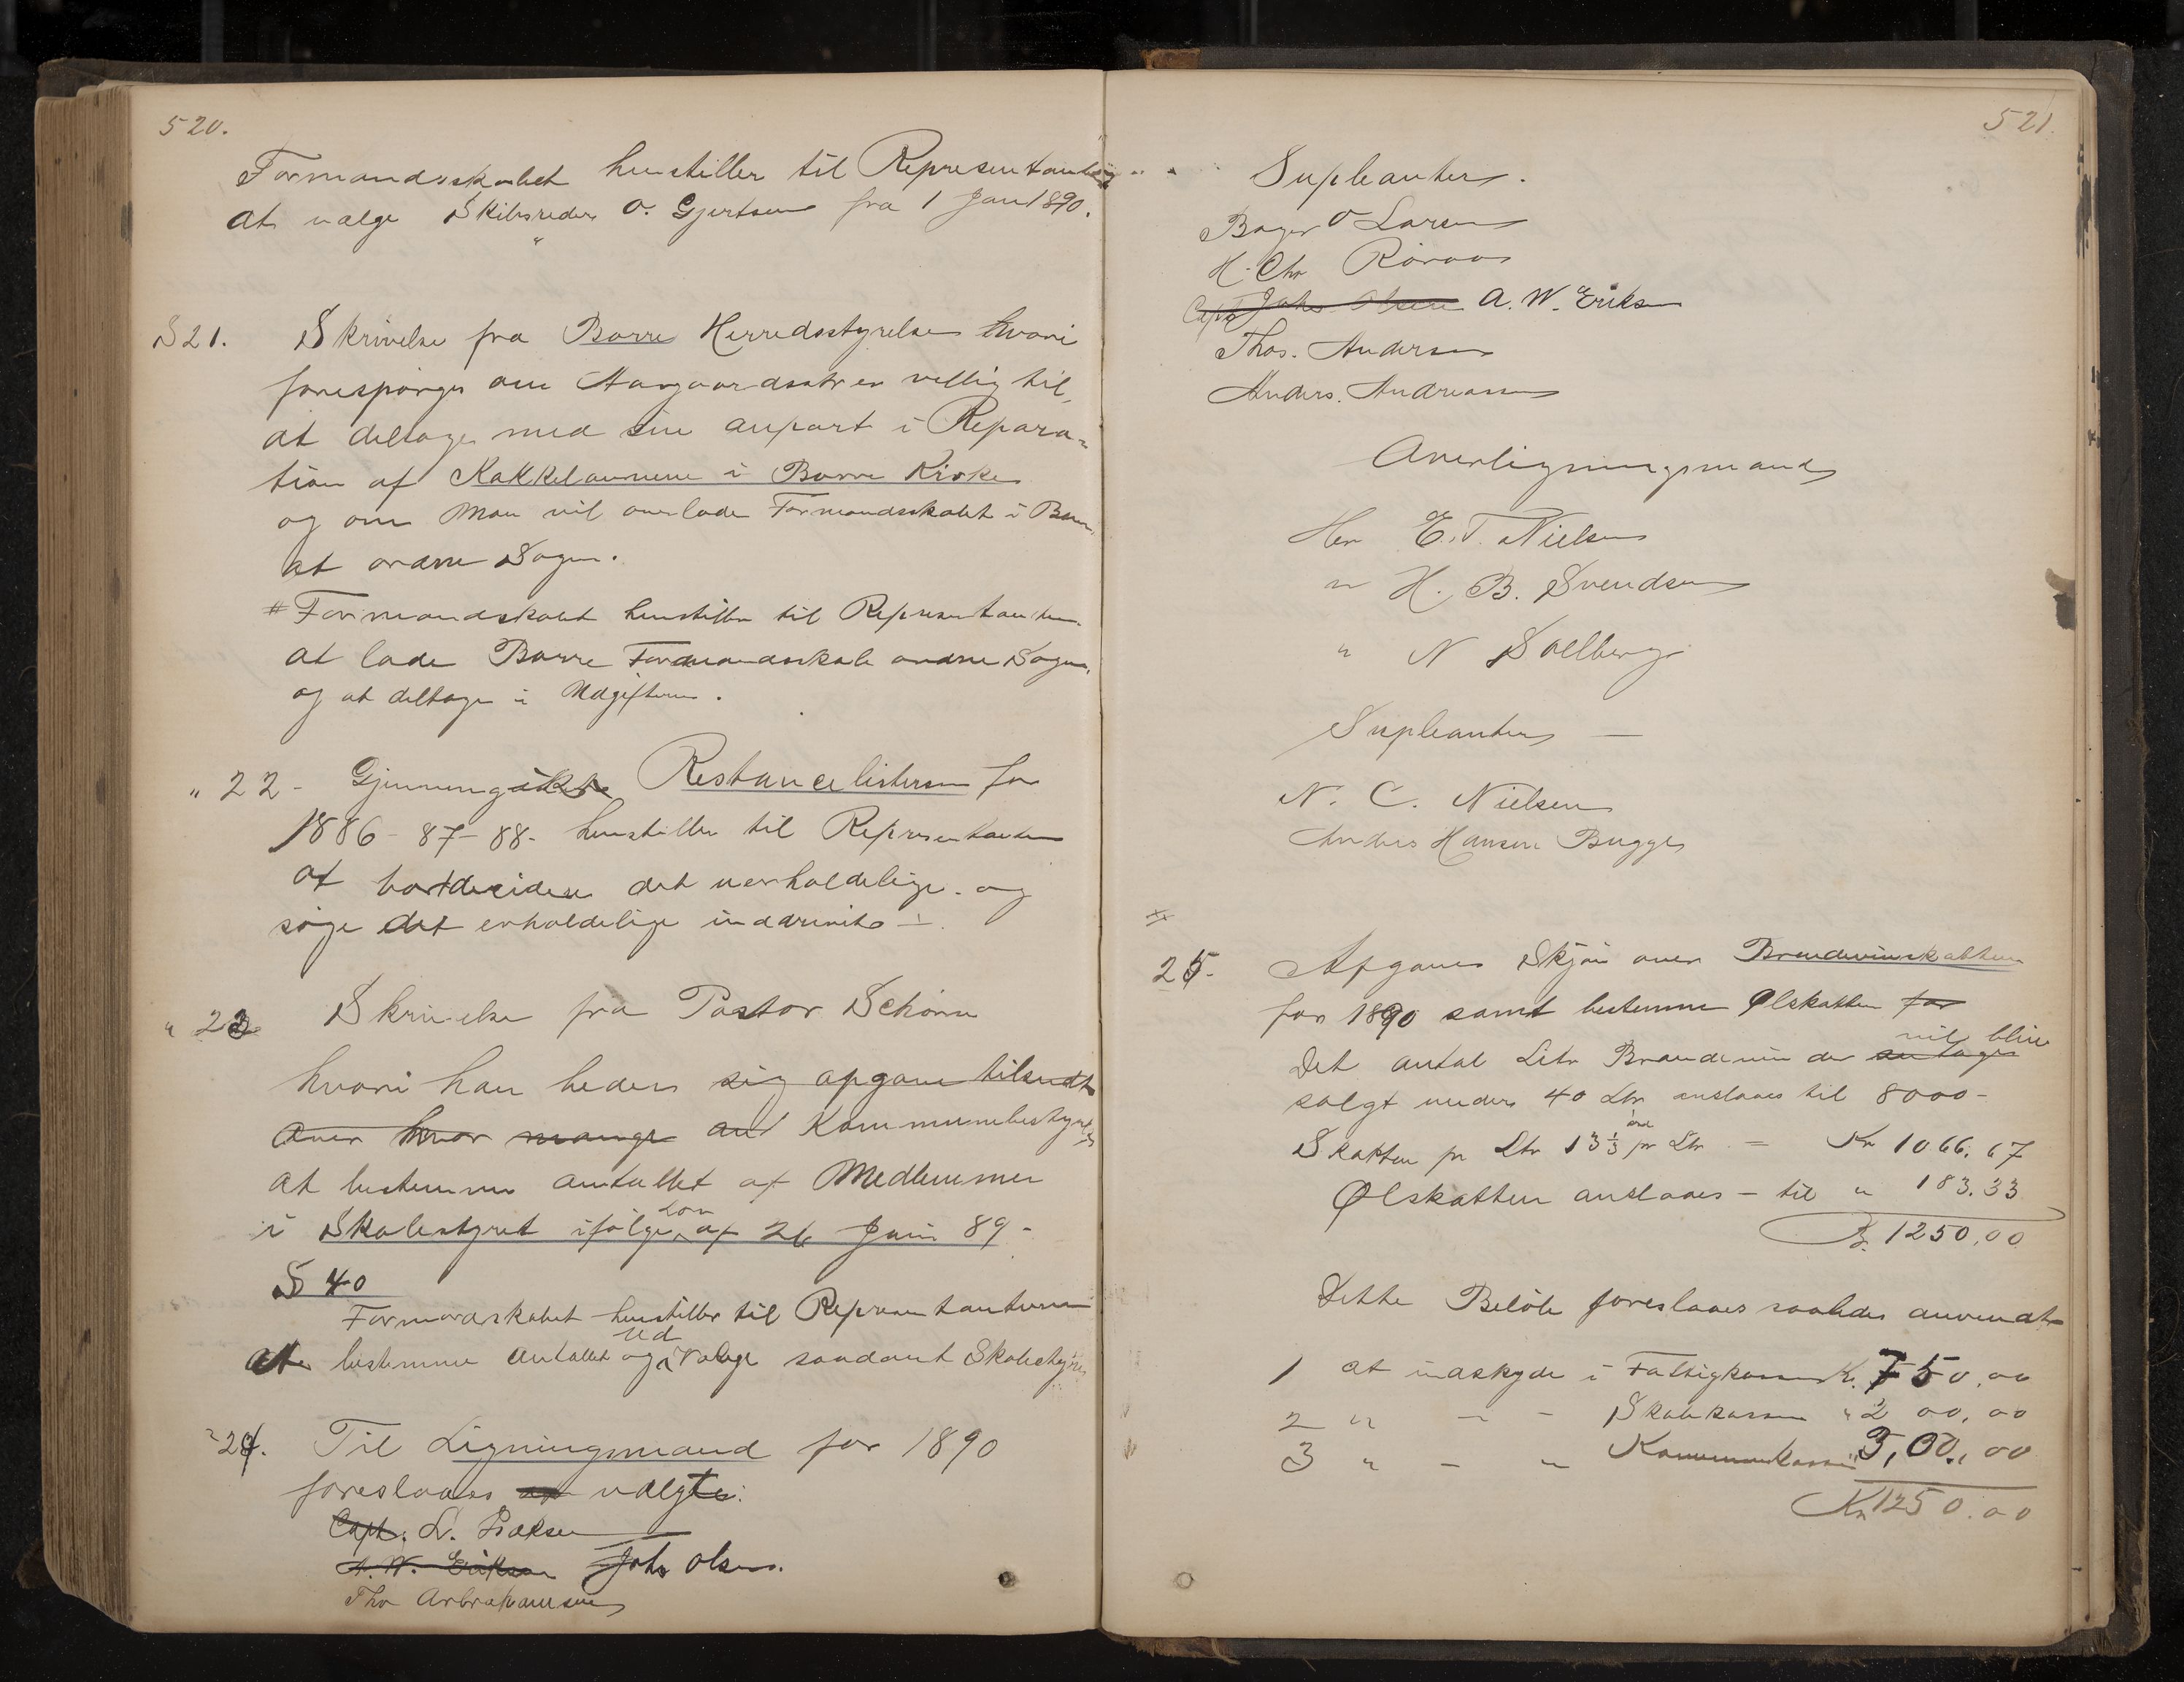 520.
Formandsskabet henstiller til Representant
at vælge Skibsreder O. Gjertsen fra 1 Jan 1890.
§ 21. Skrivelse fra Borre Herredsstyrelse hvori
forespörges om Aasgaardsstr er villig til
at deltage med sin anpart i Repara-
tion af Kakkelovnene i Borre Kirke
og om Man vil overlade Formandsskabet i Borre
at ordne Sagen.
# Formandskabet henstiller til Representanterne
at lade Borre Formandsskab ordne Sagen,
og at deltage i Udgifterne.
" 22 - Gjennemgikes Restancelisterne for
1886 - 87 - 88 - henstiller til Representanterne
at bortdecidere det uerholdelige - og
söge det erholdelige inddrevet -
" 23 Skrivelse fra Pastor Schönn
hvori han beder sig opgave tilsendt
over hvor mange an Kommunebestyrelse
at bestemme antallet af Medlemmer
i Skolestyret ifölge Lov af 26 Juni 89 -
§ 40
Formandskabet henstiller til Representanterne
at bestemme antallet og udvælge saadant Skolestyre
" 24. Til Ligningsmænd for 1890
foreslaaes at valgte:
Capt. L. Isaksen
A. W. Eriksen Joh. Olsen.
Tho Arbrahamsen
521.
Supleanter.
Bager O Larsen
H. Chr Röraas
Capt Johs Olsen A. W. Eriksen
Thos. Andersen
Anders. Andreasen
Overligningsmænd
Her E. T. Nielsen
" H. B. Svendsen
" N Sollberg
Supleanter —
N. C. Nielsen
Anders Hansen Bugge
25. Afgaves Skjön over Brændevinskatten
for 1890 samt bestemme Ølskatten for
Det antal Litr Brændevin der antages vil blive
solgt under 40 Ltr anslaaes til 8000 -
Skatten pr Ltr 13 1/3 öre pr Ltr = Kr 1066.67
Ølskatten anslaaes - til " 183.33
Kr. 1250,00
Dette Belöb foreslaaes saaledes anvendt
1 at indskyde i Fattigkassen Kr. 750,00
2 " - - Skolekassen " 200,00
3 " - " Kommunekassen " 300,00
Kr 1250.00